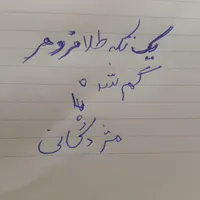 یک تکه طلا فروهر
گم شده
مژدگانی